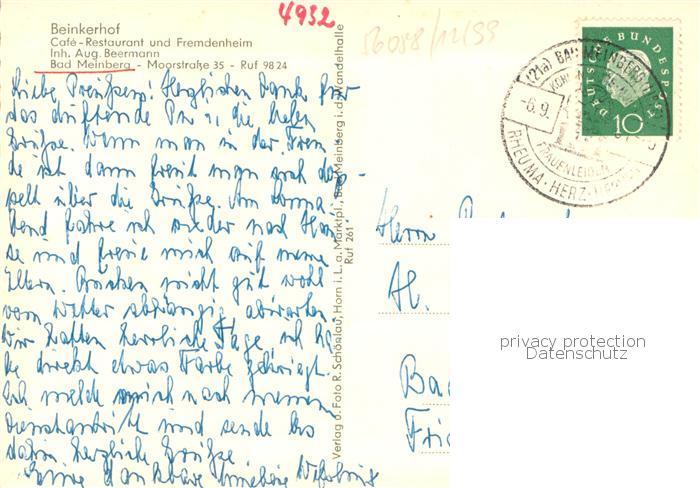 4932
56058/12/59
Beinkerhof
Café-Restaurant und Fremdenheim
Inh. Aug. Beermann
Bad Meinberg - Moorstraße 35 - Ruf 98 24
Liebe Herzlichen Dank für
das duftende die lieben
Grüsse. Wenn man in der Frem
de ist dann freut man sich dop-
pelt über die Grüsse. Am Sonna
bend fahre ich wieder nach Hau
se und freue mich auf meine
Eltern. nicht gut wohl
vom Wetter abhängig abwarten.
Wir hatten herrliche Tage ich ha
be direkt etwas Farbe gekriegt.
Ich melde mich nach meinem
Dienstantritt und sende bis
dahin herzliche Grüsse
Ihre dankbare
Verlag u. Foto R. Schönlau, Horn i. L. a. Marktpl., Bad Meinberg i. d. Wandelhalle
Ruf 261
DEUTSCHE BUNDESPOST
10
(21a) BAD MEINBERG
-6.9.
FRAUENLEIDEN
RHEUMA · HERZ ·
Herrn
H.
Ba
Fri
privacy protection
Datenschutz